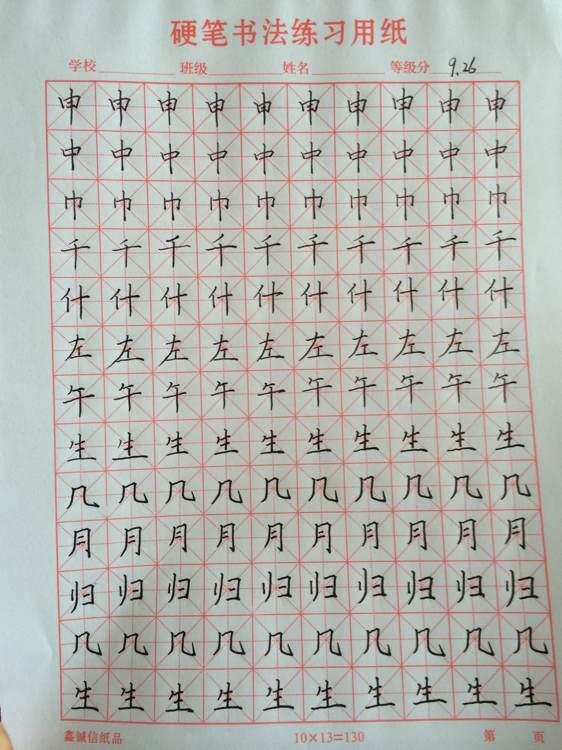 硬笔书法练习用纸
学校 班级 姓名 等级分 9.26
申申申申申申申申申申
中中中中中中中中中中
巾巾巾巾巾巾巾巾巾巾
千千千千千千千千千千
什什什什什什什什什什
左左左左左左左左左左
午午午午午午午午午午
生生生生生生生生生生
几几几几几几几几几几
月月月月月月月月月月
归归归归归归归归归归
几几几几几几几几几几
生生生生生生生生生生
鑫诚信纸品 10×13=130 第 页